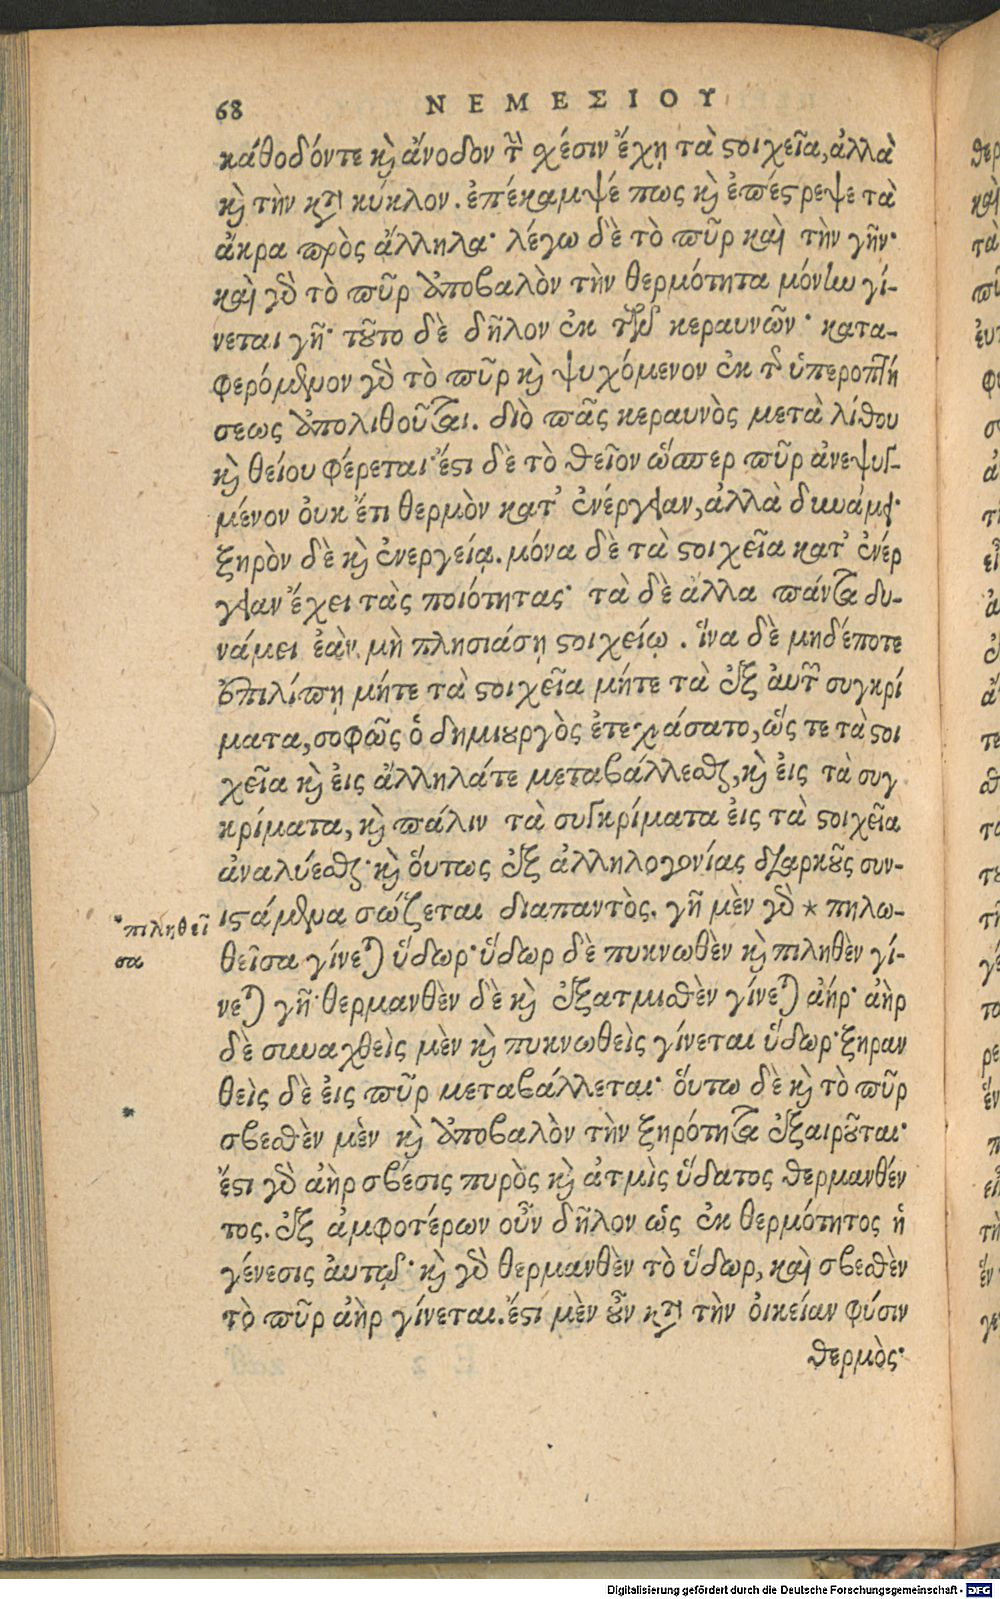 68 ΝΕΜΕΣΙΟΥ
κάθοδόντε καὶ ἄνοδον τὴν σχέσιν ἔχῃ τὰ στοιχεῖα, ἀλλὰ
καὶ τὴν κατὰ κύκλον. ἐπέκαμψέ πως καὶ ἐπέστρεψε τὰ
ἄκρα πρὸς ἄλληλα· λέγω δὲ τὸ πῦρ καὶ τὴν γῆν·
καὶ γὰρ τὸ πῦρ ἀποβαλὸν τὴν θερμότητα μόνην γί-
νεται γῆ· τοῦτο δὲ δῆλον ἐκ τῶν κεραυνῶν· κατα-
φερόμενον γὰρ τὸ πῦρ καὶ ψυχόμενον ἐκ τῆς ὑπεροπτή
σεως ἀπολιθοῦται. διὸ πᾶς κεραυνὸς μετὰ λίθου
καὶ θείου φέρεται· ἔστι δὲ τὸ θεῖον ὥσπερ πῦρ ἀνεψυγ-
μένον οὐκ ἔτι θερμὸν κατ' ἐνέργειαν, ἀλλὰ δυνάμει·
ξηρὸν δὲ καὶ ἐνεργείᾳ. μόνα δὲ τὰ στοιχεῖα κατ' ἐνέρ
γειαν ἔχει τὰς ποιότητας· τὰ δὲ ἄλλα πάντα δυ-
νάμει ἐὰν μὴ πλησιάσῃ στοιχείῳ. ἵνα δὲ μηδέποτε
ἐπιλίπῃ μήτε τὰ στοιχεῖα μήτε τὰ ἐξ αὐτῶν συγκρί
ματα, σοφῶς ὁ δημιουργὸς ἐτεχνάσατο, ὥς τε τὰ στοι
χεῖα καὶ εἰς ἄλληλάτε μεταβάλλεσθαι, καὶ εἰς τὰ συγ
κρίματα, καὶ πάλιν τὰ συγκρίματα εἰς τὰ στοιχεῖα
ἀναλύεσθαι· καὶ οὕτως ἐξ ἀλληλογονίας διαρκοῦς συν-
ιστάμενα σώζεται διαπαντὸς. γῆ μὲν γὰρ * πηλω-
*πιληθεῖ
σα
θεῖσα γίνεται ὕδωρ· ὕδωρ δὲ πυκνωθὲν καὶ πιληθὲν γί-
νεται γῆ· θερμανθὲν δὲ καὶ ἐξατμισθὲν γίνεται ἀήρ· ἀὴρ
δὲ συναχθεὶς μὲν καὶ πυκνωθεὶς γίνεται ὕδωρ· ξηραν
θεὶς δὲ εἰς πῦρ μεταβάλλεται· οὕτω δὲ καὶ τὸ πῦρ
σβεσθὲν μὲν καὶ ἀποβαλὸν τὴν ξηρότητα ἐξαιροῦται·
ἔστι γὰρ ἀὴρ σβέσις πυρὸς καὶ ἀτμὶς ὕδατος θερμανθέν
τος. ἐξ ἀμφοτέρων οὖν δῆλον ὡς ἐκ θερμότητος ἡ
γένεσις αὐτοῦ· καὶ γὰρ θερμανθὲν τὸ ὕδωρ, καὶ σβεσθὲν
τὸ πῦρ ἀὴρ γίνεται. ἔστι μὲν οὖν κατὰ τὴν οἰκείαν φύσιν
θερμὸς·
Digitalisierung gefördert durch die Deutsche Forschungsgemeinschaft - DFG